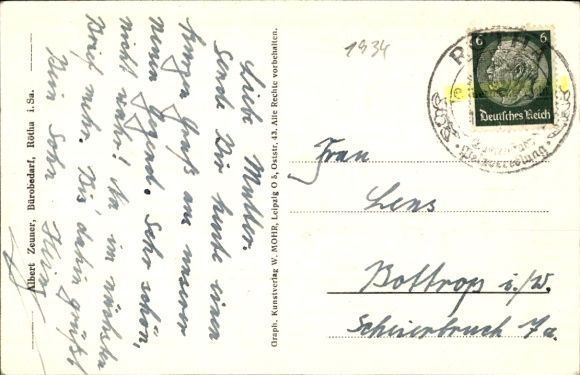 Lieb Mutter.
Sende Dir heute einen
kurzen Gruß aus unserer
neuen Gegend. Sehr schön,
nicht wahr! Na im nächsten
Brief mehr. Bis dahin grüßt
Dein Sohn Heinz
Albert Zeuner, Bürobedarf, Rötha i. Sa.
Graph. Kunstverlag W. MOHR, Leipzig O 5, Oststr. 43. Alle Rechte vorbehalten.
1934
6 6
Deutsches Reich
Frau
Lens
Bottrop i./W.
Scheierbruch 7a.